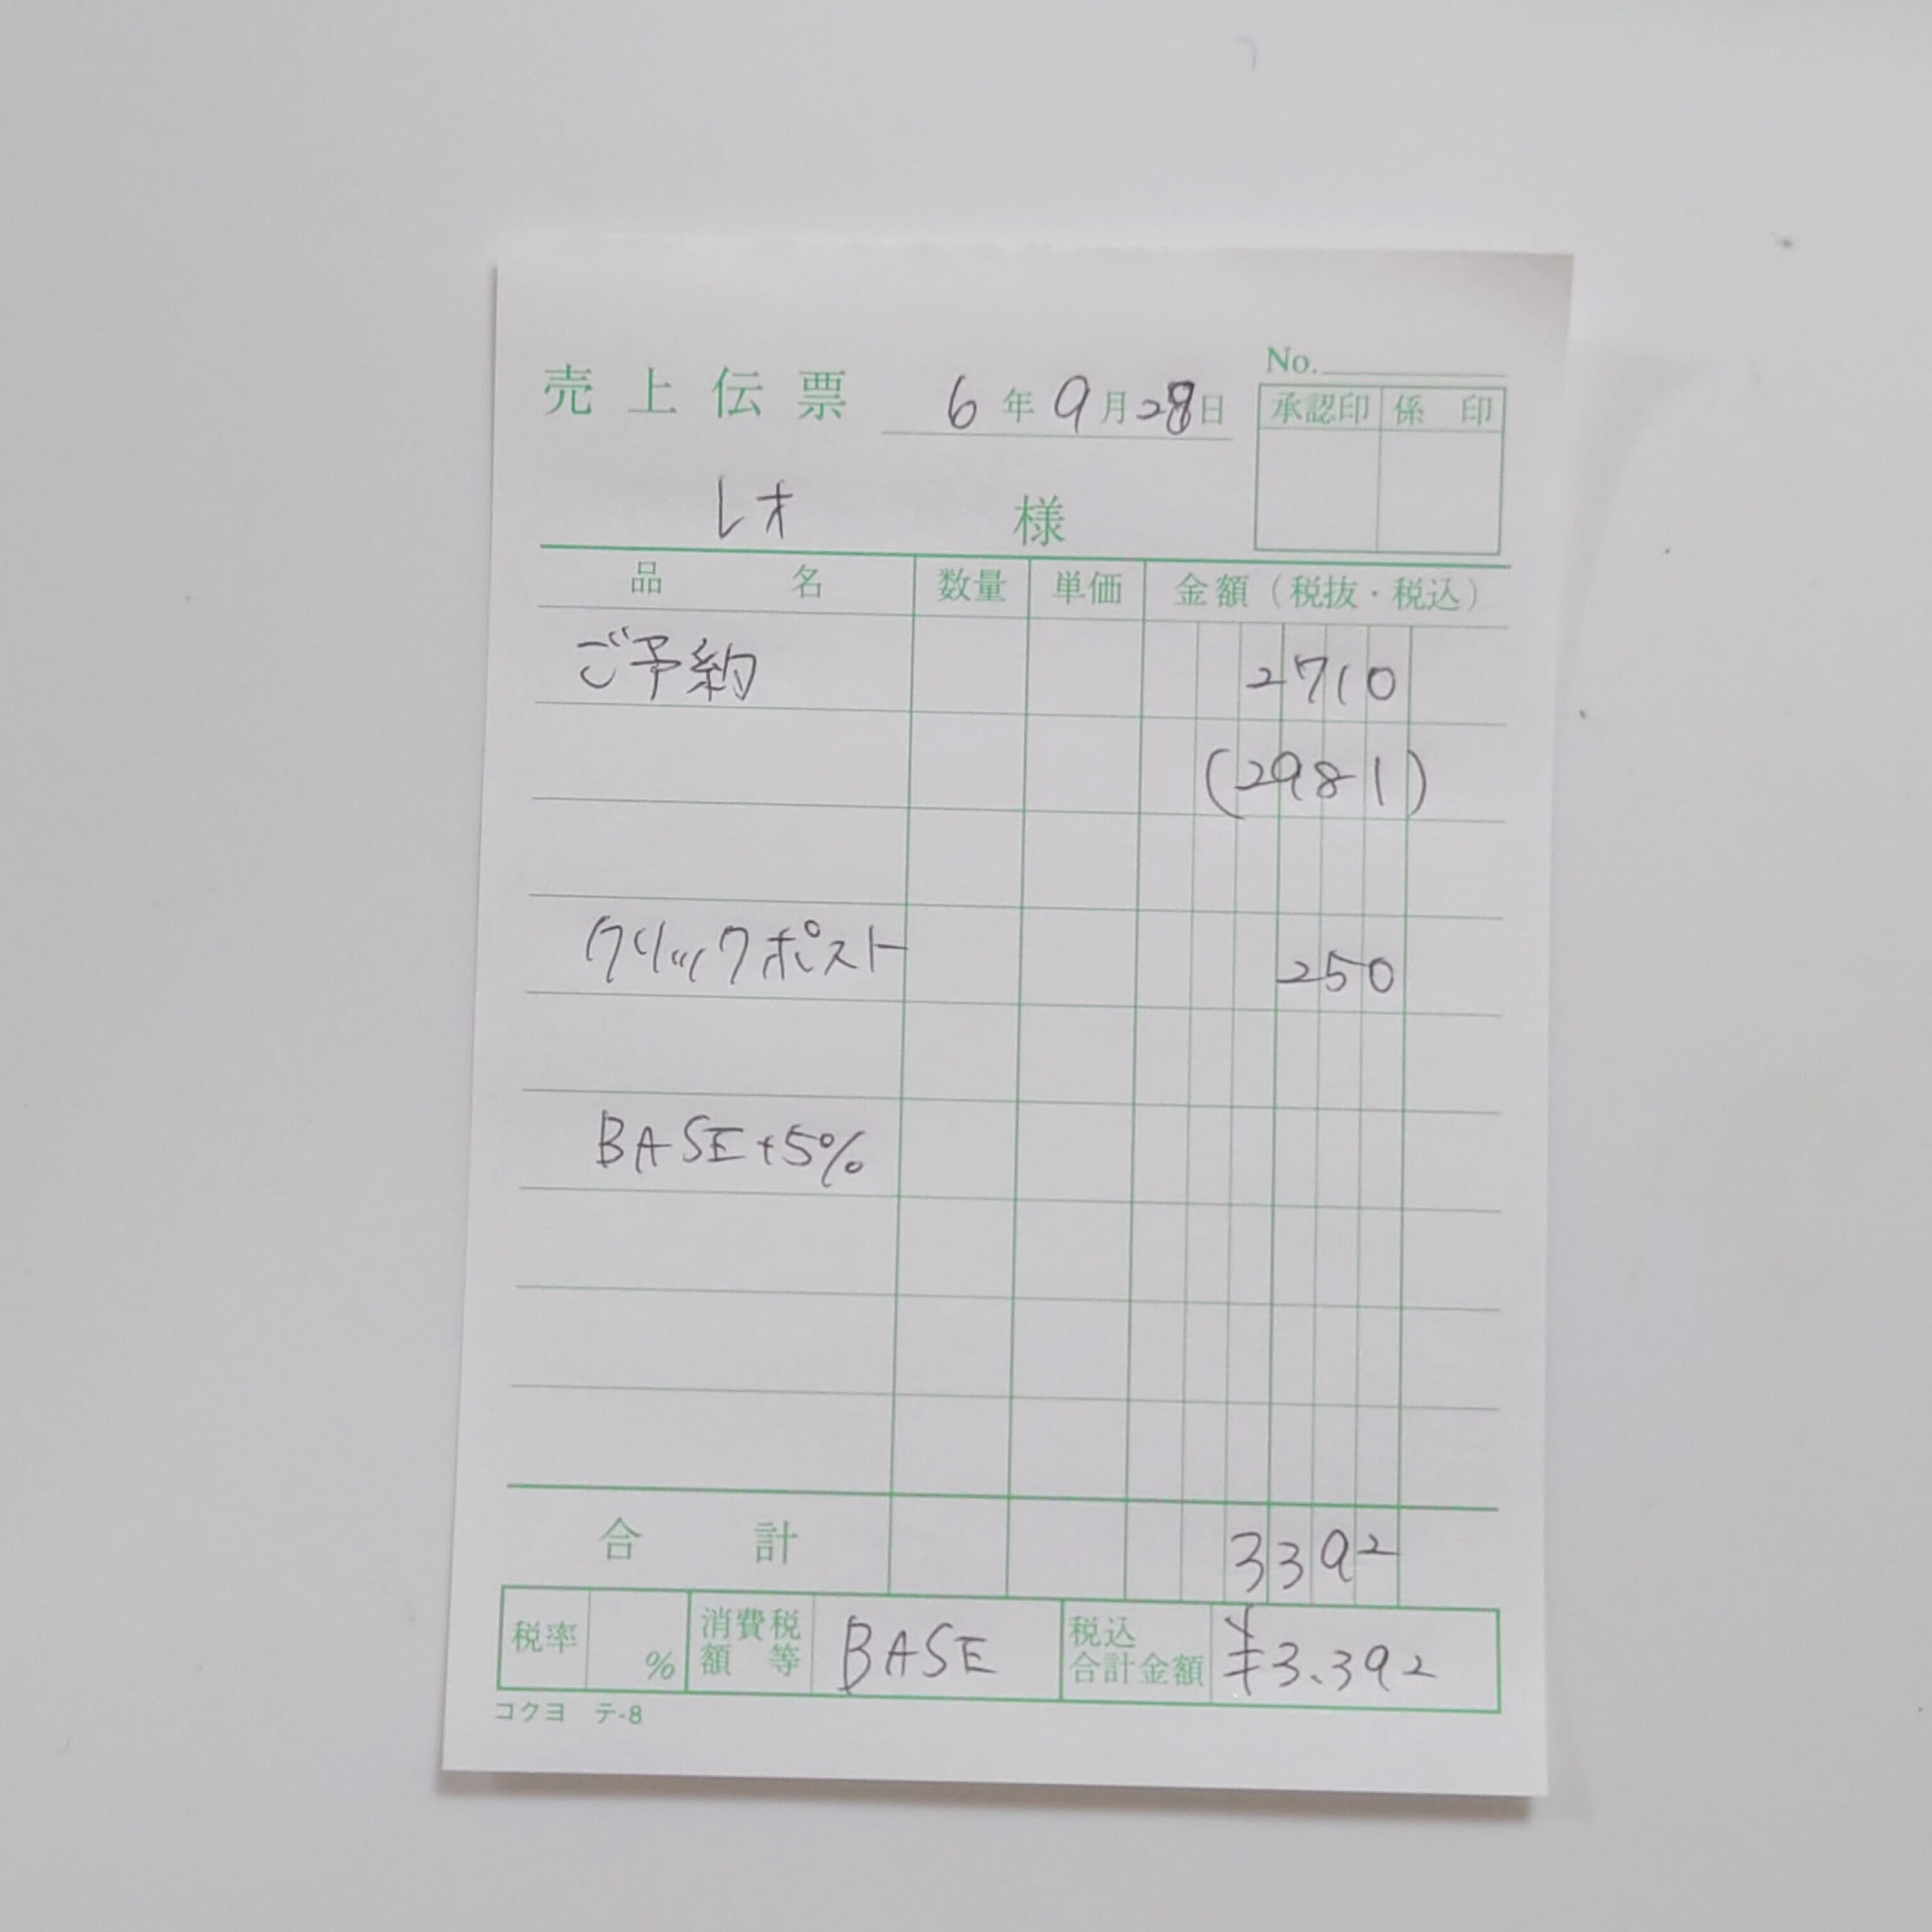 No.
売上伝票 6年9月28日
承認印 係印
レオ 様
品名 数量 単価 金額（税抜・税込）
ご予約 2710
(2981)
クリックポスト 250
BASE+5%
合計 3392
税率 % 消費税額等 BASE 税込合計金額 ¥3.392
コクヨ テ-8